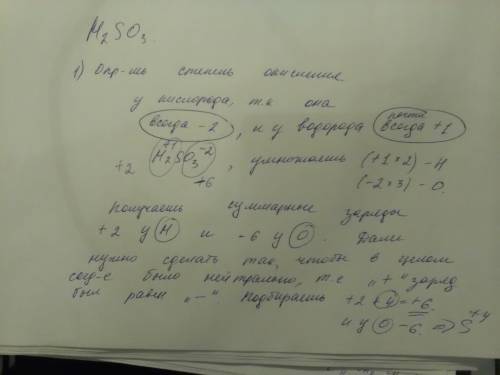 H₂SO₃.
1) Опр-шь степень окисления
у кислорода, т.к она
всегда -2, и у водорода почти всегда +1
+2 H₂⁺¹SO₃⁻² , умножаешь (+1×2) - H
+6 (-2×3) - O.
Получаешь суммарные заряды
+2 у H и -6 у O. Далее
нужно сделать так, чтобы в целом
соед-е было нейтрально, т.е „+“ заряд
был равен „-“. Подбираешь +2 +4=+6
и у O -6. => S⁺⁴